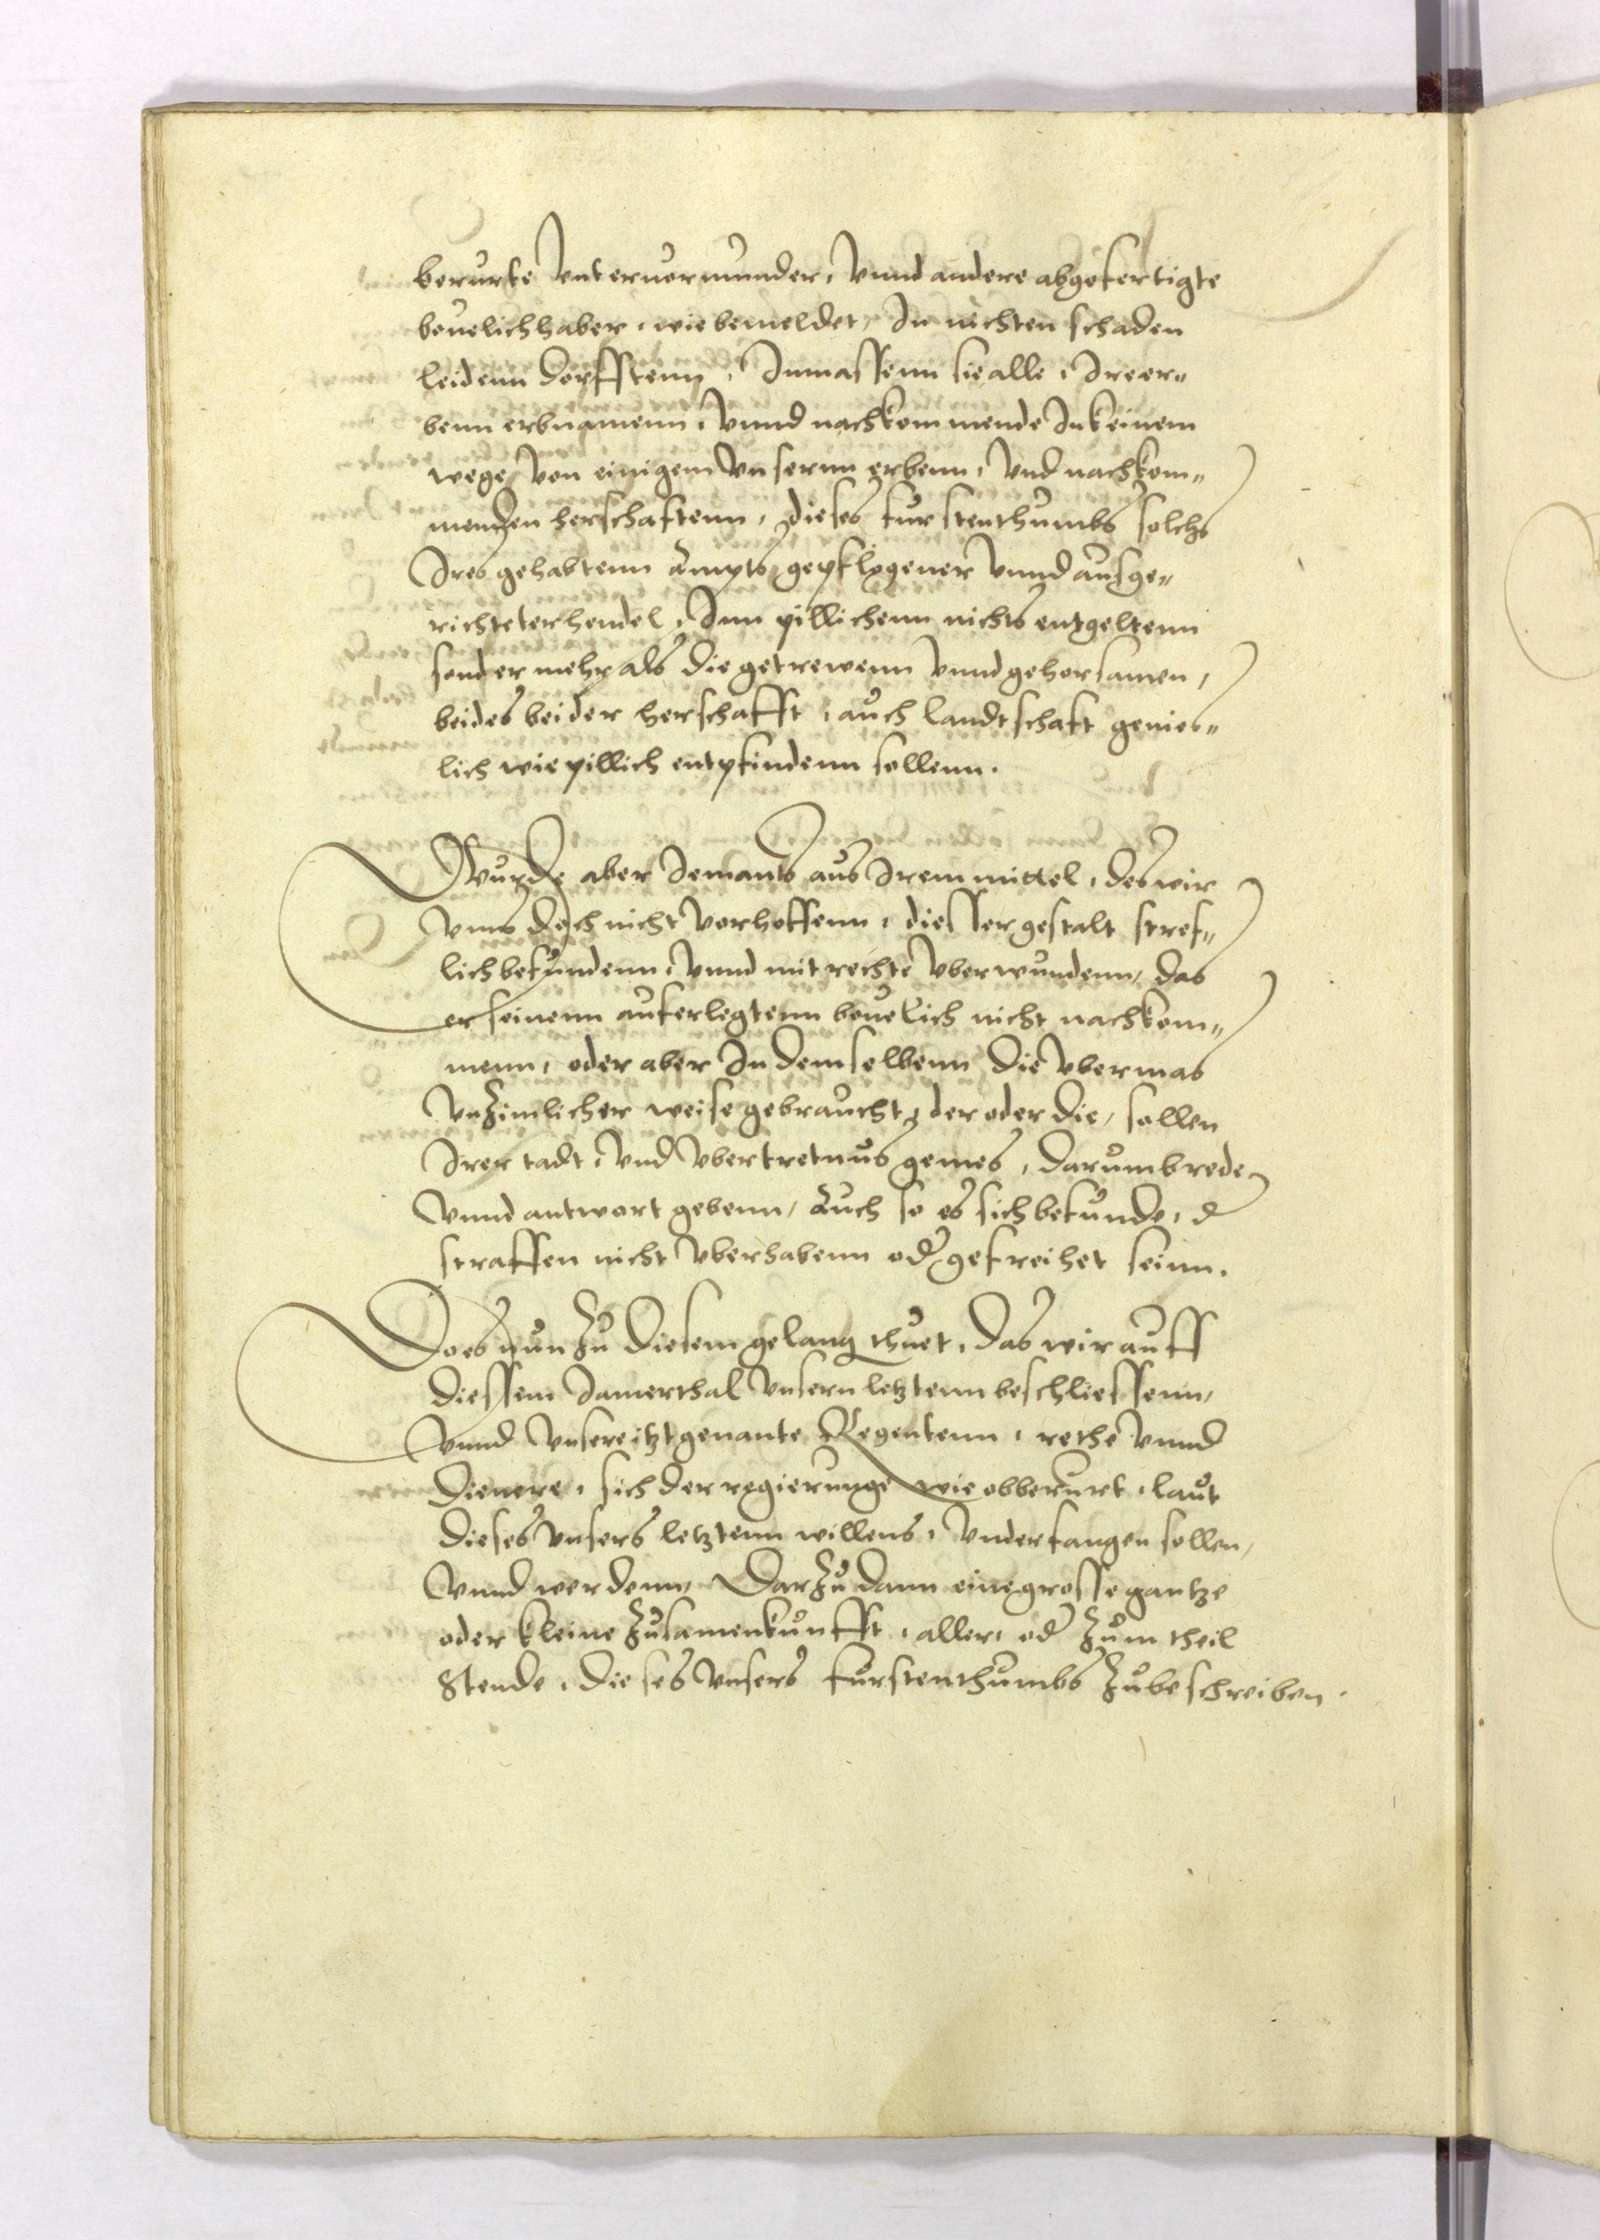 berurte Unteruormunder, Vnnd andere abgefertigte
beuelichhaber, wie bemeldet, In nichten schaden
leidenn dorfftenn, Inmassenn sie alle, Ire er„
benn erbnamenn, Vnnd nachkommende In keinem
wege, Von einigem Vnserm erbenn, Vnd nachkom„
menden herschaftenn, dieses furstenthumbs solchs
Ires gehabtenn Ampts, gepflogener Vnnd ausge„
richteter hendel, Inn pillichenn nichts entgeltenn
sonder mehr als die getrewenn Vnnd gehorsamen,
beides bei der herschafft, auch landtschaft genies„
lich wie pillich entpfindenn sollenn.
Wurde aber Iemants aus Irem mittel, des wir
Vnns doch nicht Verhoffenn, diesser gestalt stref„
lich befundenn, Vnnd mit rechte Vberwundenn, das
er seinenn auferlegtenn beuelich nicht nachkom„
menn, oder aber In demselbenn die Vbermas
Vnzimlicher weise gebraucht, der oder die, sollen
Irer tadt, Vnd Vbertretnus gemes, darumb rede
Vnnd antwort gebenn, Auch so es sich befunde, d
straffen nicht Vberhabenn od gefreihet seinn.
Do es nun zu diesem gelang thuet, das wir auff
diessem Iamerthal Vnsern letztenn beschliessenn,
Vnnd Vnsere itztgenante Regentenn, rethe Vnnd
dienere, sich der regierunge wie obberurt, laut
dieses Vnsers letztenn willens, Vnderfangen sollen,
Vnnd werdenn, Darzu dann eine grosse gantze
oder kleine zusamenkunfft, aller, od zum theil
Stende, dieses Vnsers furstenthumbs zubeschreiben.